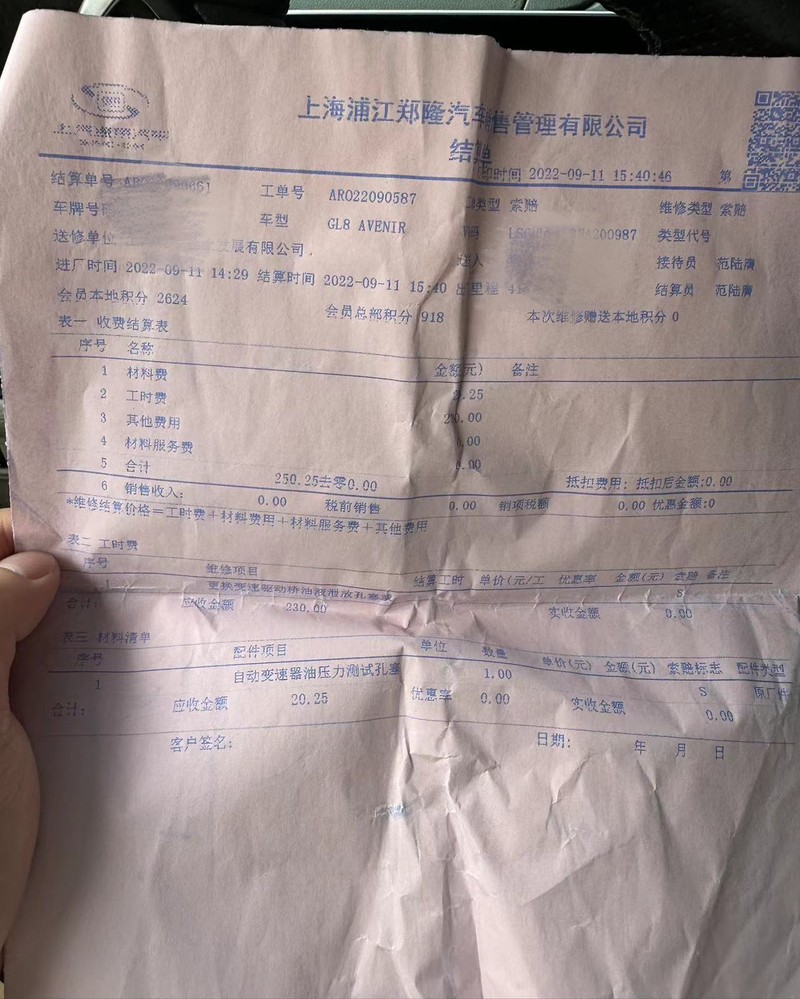 上海浦江郑隆汽车销售管理有限公司
结算
时间 2022-09-11 15:40:46 第
结算单号 工单号 ARO22090587 类型 索赔 维修类型 索赔
车牌号 车型 GL8 AVENIR 200987 类型代号
送修单位 发展有限公司. 接待员 范陆
进厂时间 2022-09-11 14:29 结算时间 2022-09-11 15:40 出里程 结算员 范陆
会员本地积分 2624 会员总部积分 918 本次维修赠送本地积分 0
表一 收费结算表
序号 名称 金额(元) 备注
1 材料费 .25
2 工时费 .00
3 其他费用 .00
4 材料服务费 .00
5 合计 250.25去零0.00 抵扣费用: 抵扣后金额:0.00
6 销售收入: 0.00 税前销售 0.00 销项税额 0.00 优惠金额:0
*维修结算价格=工时费+材料费用+材料服务费+其他费用
表二 工时费
序号 维修项目 结算工时 单价(元/工 优惠率 金额(元) 索赔 备注
1 更换变速驱动桥油液泄放孔塞 S
合计: 应收金额 230.00 实收金额 0.00
表三 材料清单
序号 配件项目 单位 数量 单价(元) 金额(元) 索赔标志 配件类型
1 自动变速器油压力测试孔塞 1.00 S 原厂件
合计: 应收金额 20.25 优惠率 0.00 实收金额 0.00
客户签名: 日期: 年 月 日